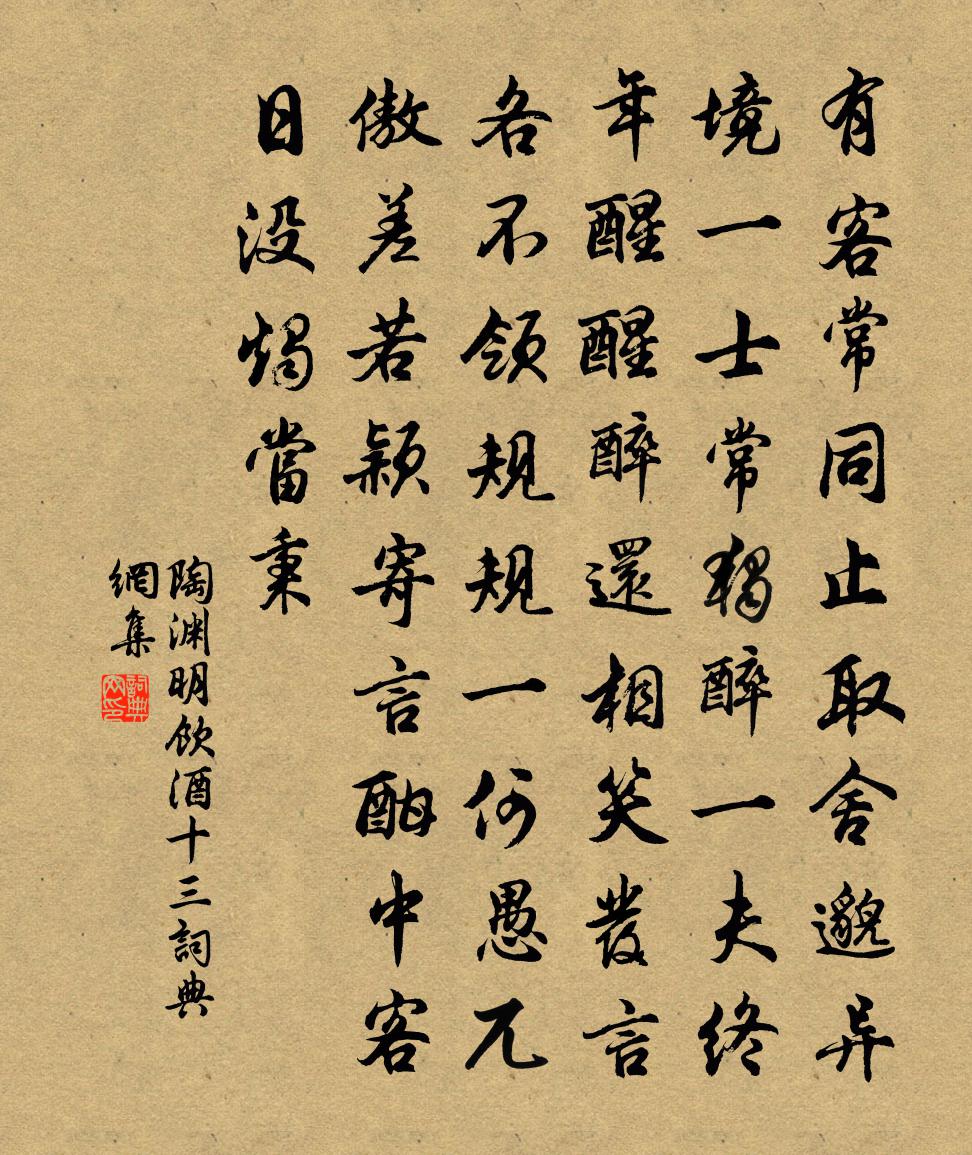 有客常同止取舍邈异
境一士常独醉一夫终
年醒醒醉還相笑發言
各不领規規一何愚兀
傲差若颖寄言酣中客
日没燭當秉
陶渊明飲酒十三詞典
網集
詞典網印